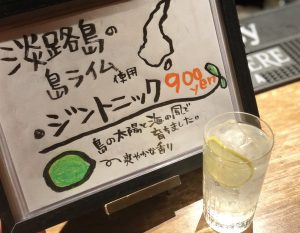 淡路島の
島ライム使用
ジントニック 900yen
島の太陽と海の風で
育ちました。
爽やかな香り